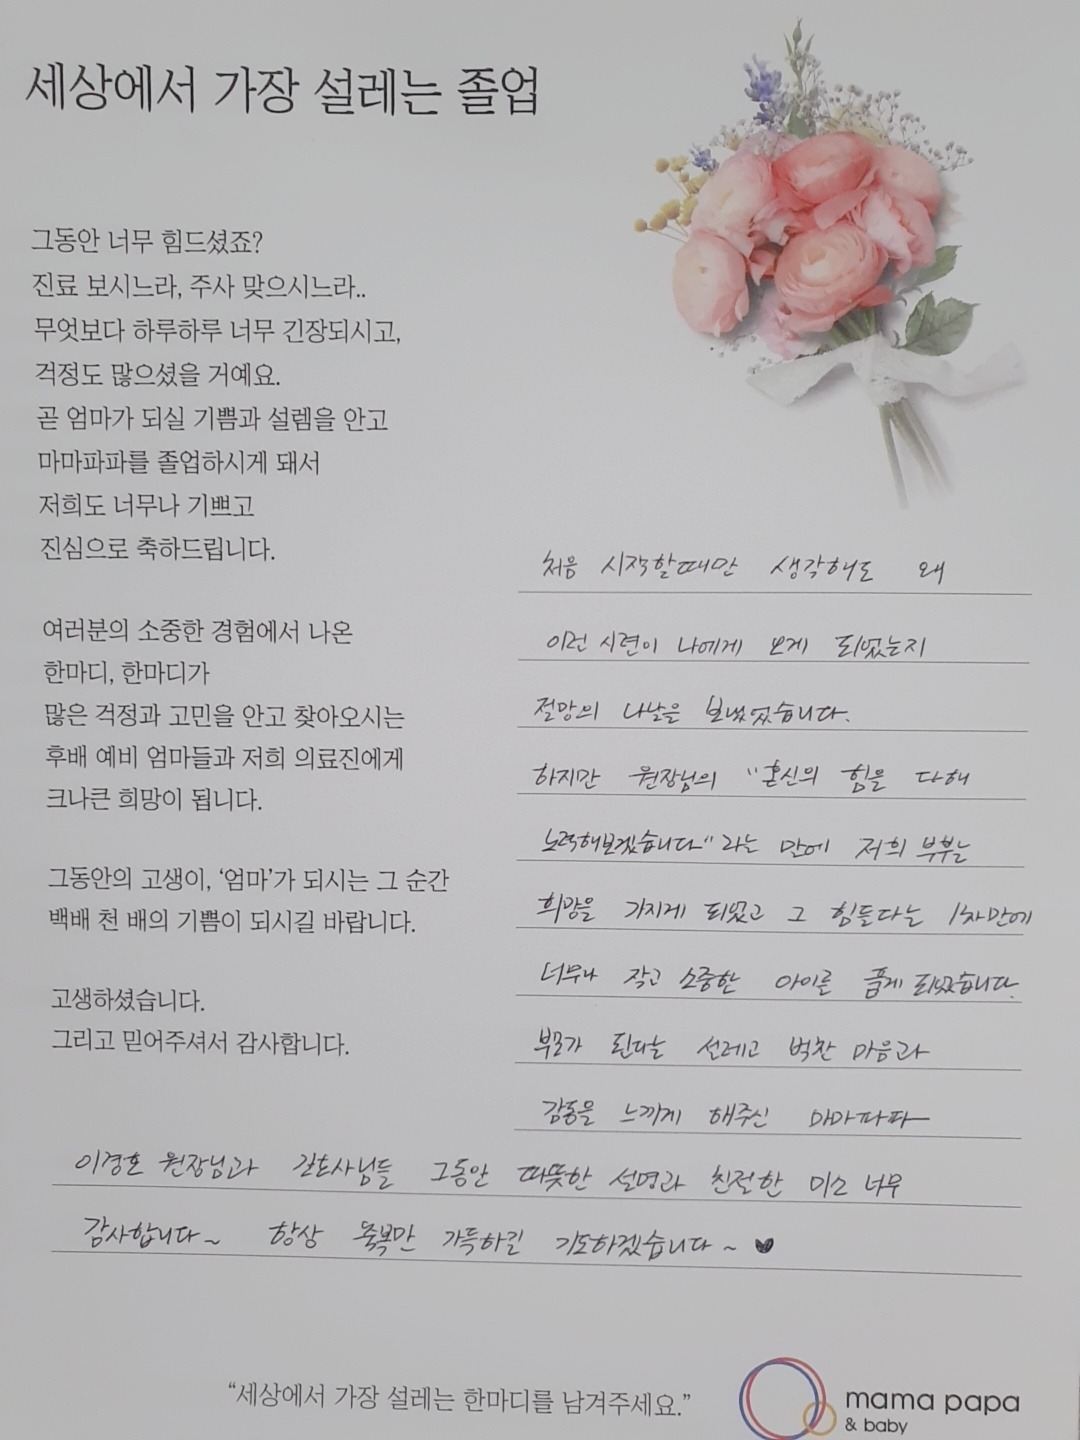 세상에서 가장 설레는 졸업
그동안 너무 힘드셨죠?
진료 보시느라, 주사 맞으시느라..
무엇보다 하루하루 너무 긴장되시고,
걱정도 많으셨을 거예요.
곧 엄마가 되실 기쁨과 설렘을 안고
마마파파를 졸업하시게 돼서
저희도 너무나 기쁘고
진심으로 축하드립니다.
여러분의 소중한 경험에서 나온
한마디, 한마디가
많은 걱정과 고민을 안고 찾아오시는
후배 예비 엄마들과 저희 의료진에게
크나큰 희망이 됩니다.
그동안의 고생이, '엄마'가 되시는 그 순간
백배 천 배의 기쁨이 되시길 바랍니다.
고생하셨습니다.
그리고 믿어주셔서 감사합니다.
처음 시작할때만 생각해도 왜
이런 시련이 나에게 오게 되었는지
절망의 나날을 보냈었습니다.
하지만 원장님의 "혼신의 힘을 다해
노력해보겠습니다" 라는 말에 저희 부부는
희망을 가지게 되었고 그 힘들다는 1차만에
너무나 작고 소중한 아이를 품게 되었습니다.
부모가 된다는 설레고 벅찬 마음과
감동을 느끼게 해주신 마마파파
이경호 원장님과 간호사님들 그동안 따뜻한 설명과 친절한 미소 너무
감사합니다~ 항상 축복만 가득하길 기도하겠습니다~ ♥
"세상에서 가장 설레는 한마디를 남겨주세요."
mama papa
& baby